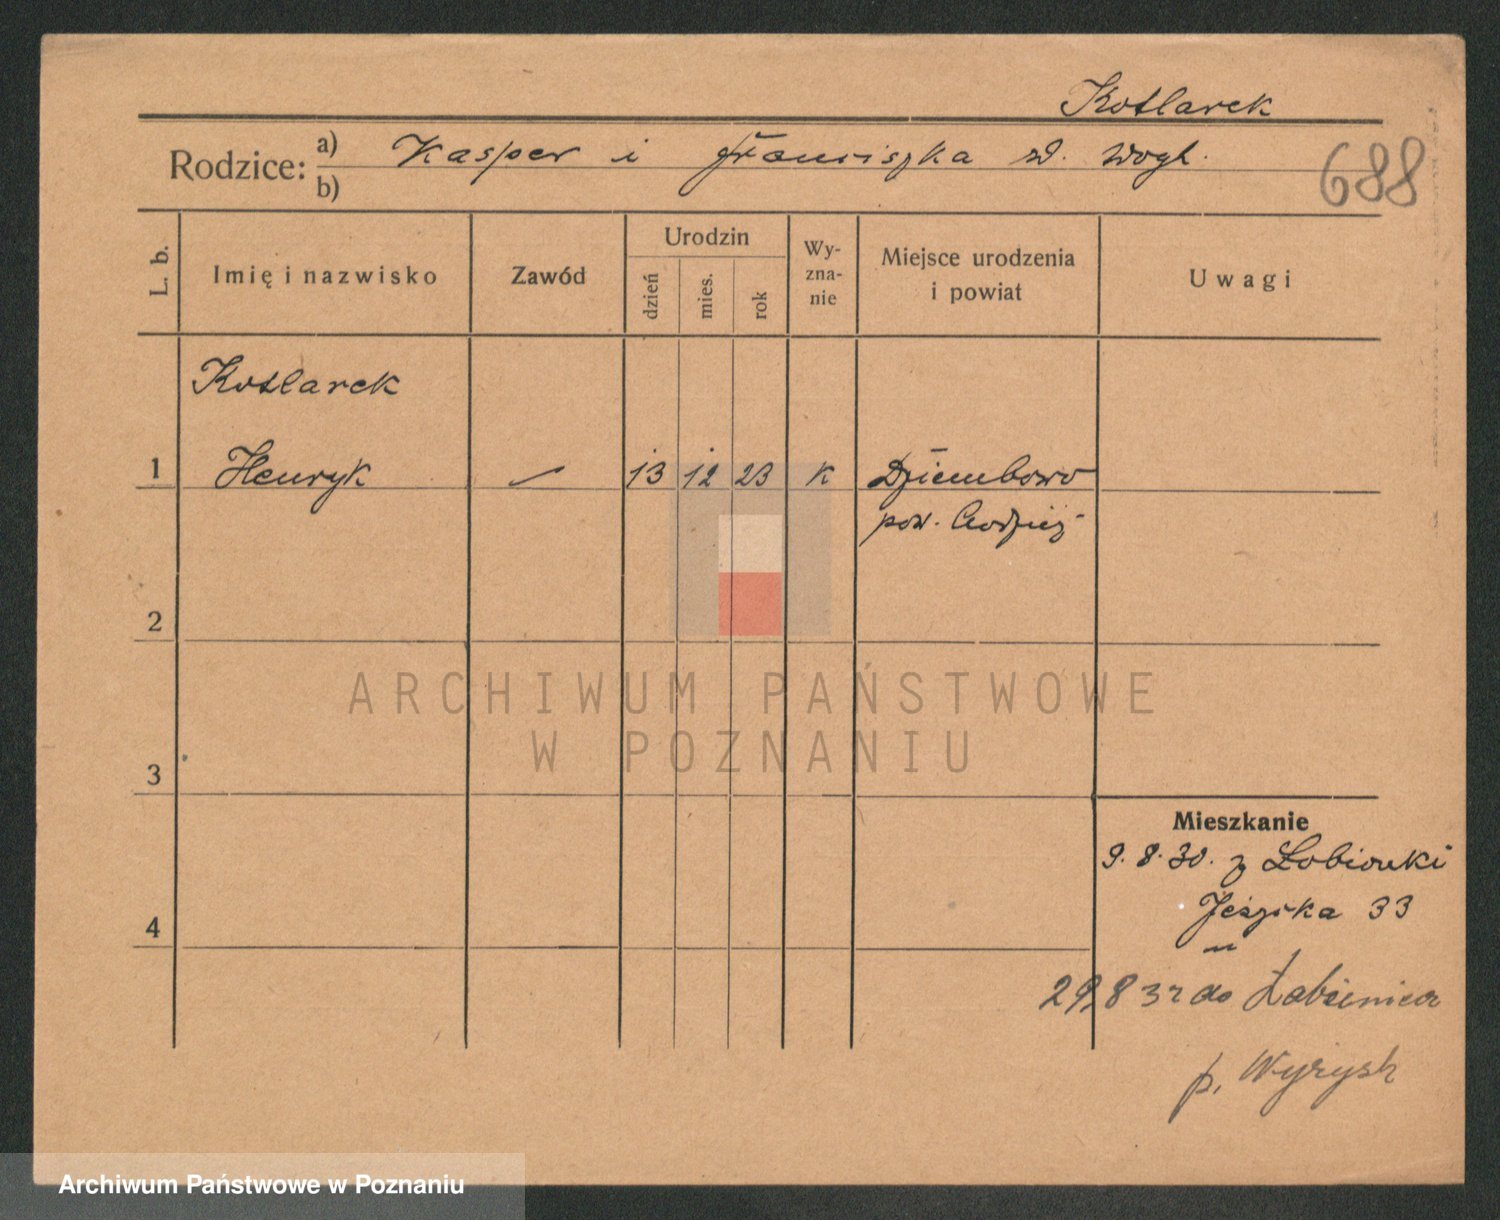 Kotlarek
Rodzice: a) Kasper i Franciszka zd. Wogt.
b)
688
L. b.
Imię i nazwisko
Zawód
Urodzin
dzień
mies.
rok
Wy-
zna-
nie
Miejsce urodzenia
i powiat
Uwagi
Kotlarek
1 Henryk — 13 12 23 K Dziembowo
pow. Chodzież
2
ARCHIWUM PAŃSTWOWE
W POZNANIU
3
4
Mieszkanie
9.8.30. z
33
29.8 32 do
p. Wyrzysk
Archiwum Państwowe w Poznaniu